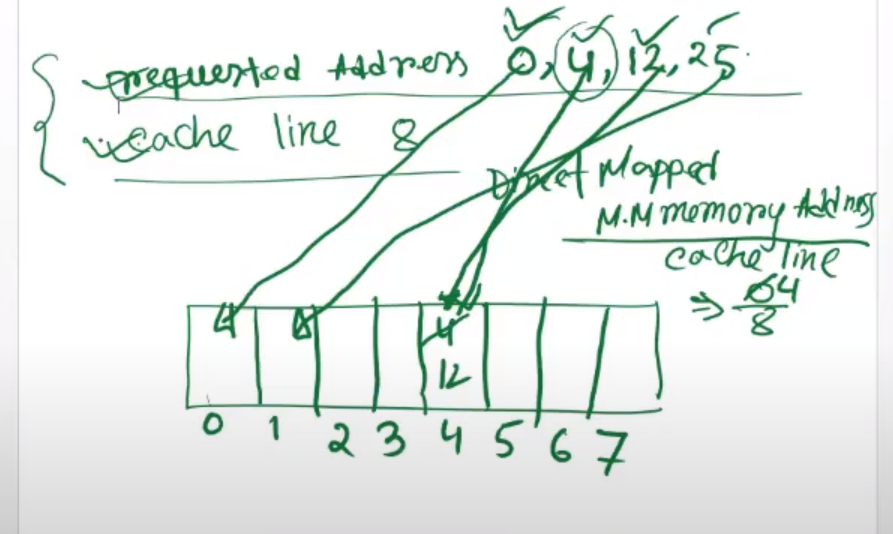 requested Address 0, 4, 12, 25
cache line 8
Direct Mapped
M.M memory Address
cache line
⇒ 04
8
4
12
0 1 2 3 4 5 6 7